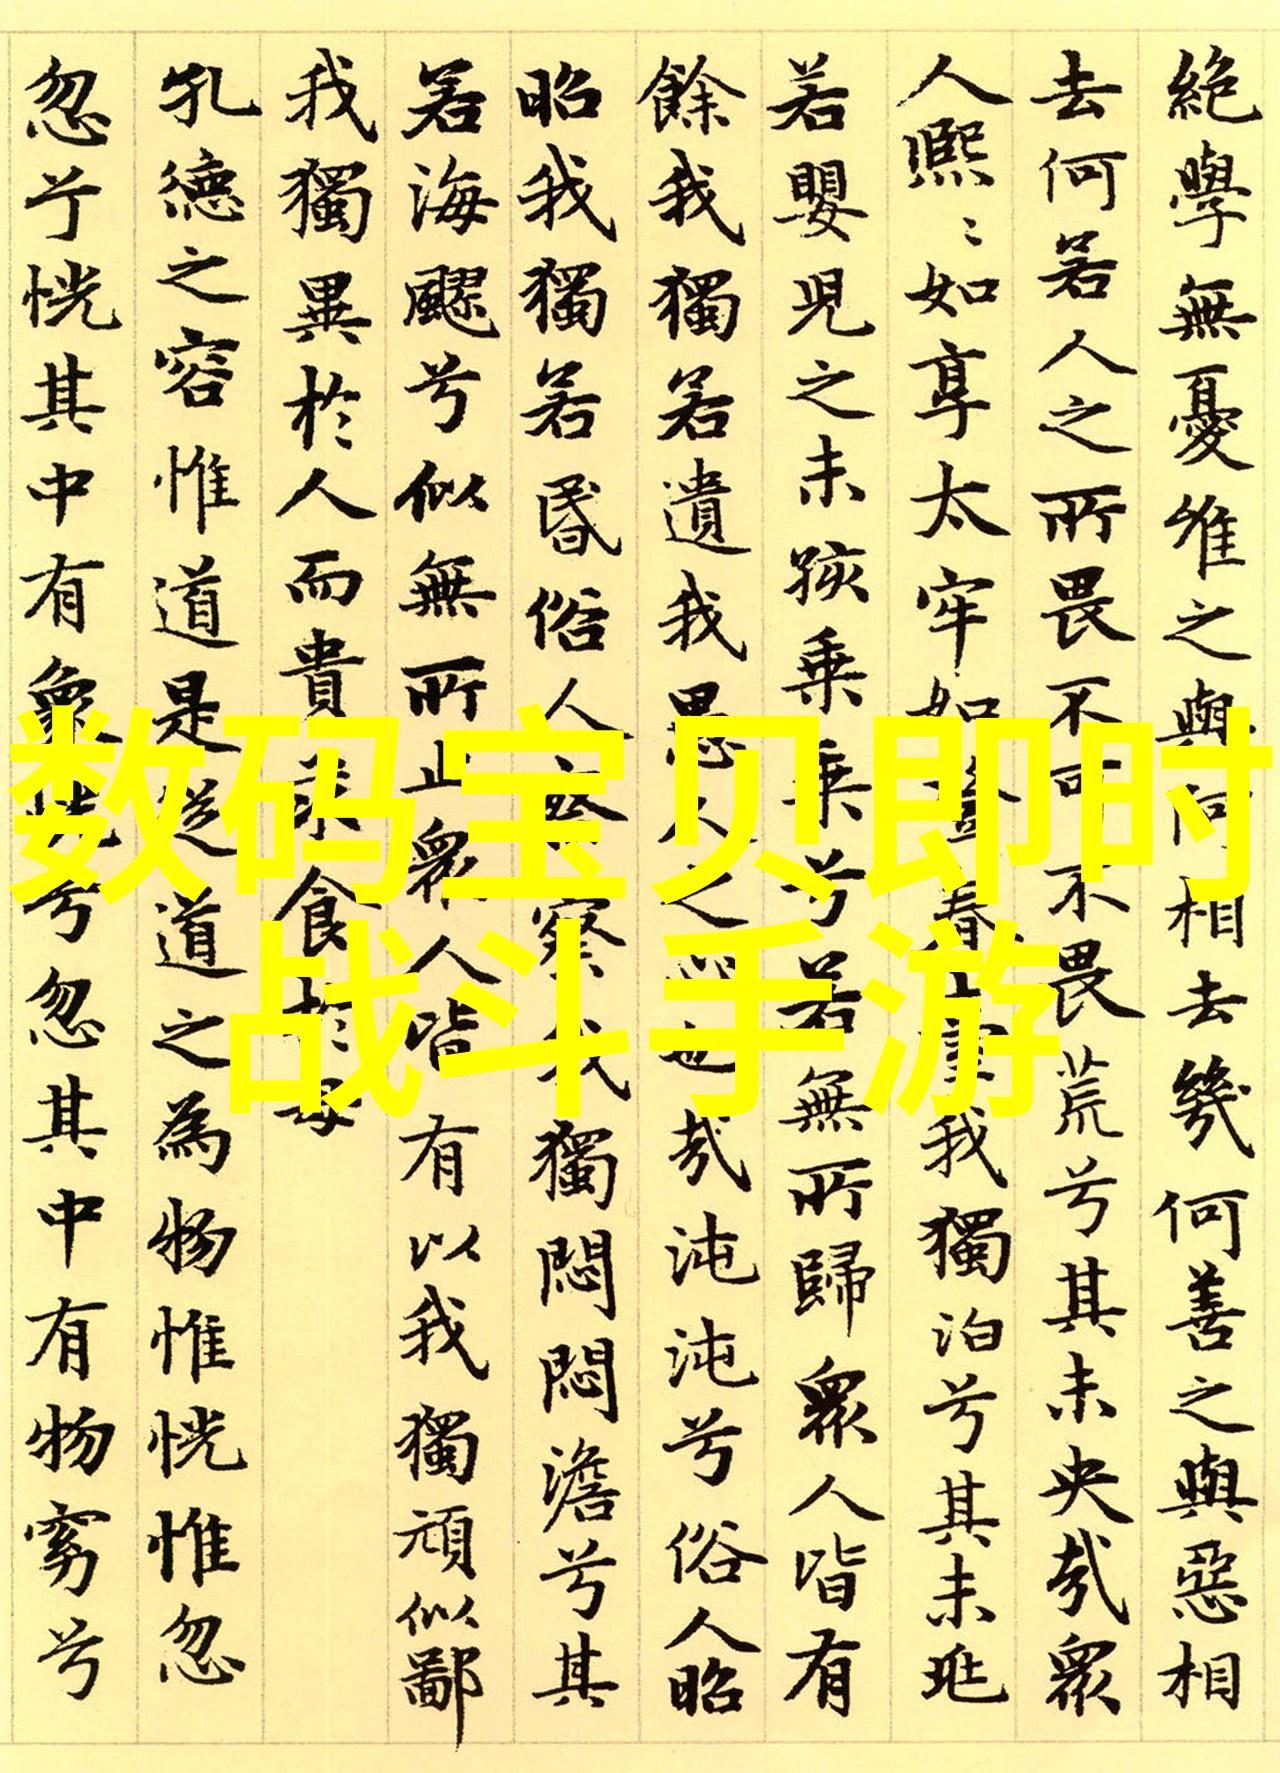 絶學無憂唯之與何相去幾何善之與惡相
去何若人之所畏不可不畏荒兮其未央哉眾
人熙〻如享太牢如登春臺我獨泊兮其未兆
若嬰兒之未孩乗乗兮若無所歸眾人皆有
餘我獨若遺我愚人之心也哉沌沌兮俗人昭
昭我獨若昏俗人察察我獨悶悶澹兮其
若海飂兮似無所止眾人皆有以我獨頑似鄙
我獨異於人而貴求食於母
孔德之容惟道是從道之為物惟恍惟忽
忽兮恍其中有象恍兮忽其中有物窈兮
数码宝贝即时
战斗手游